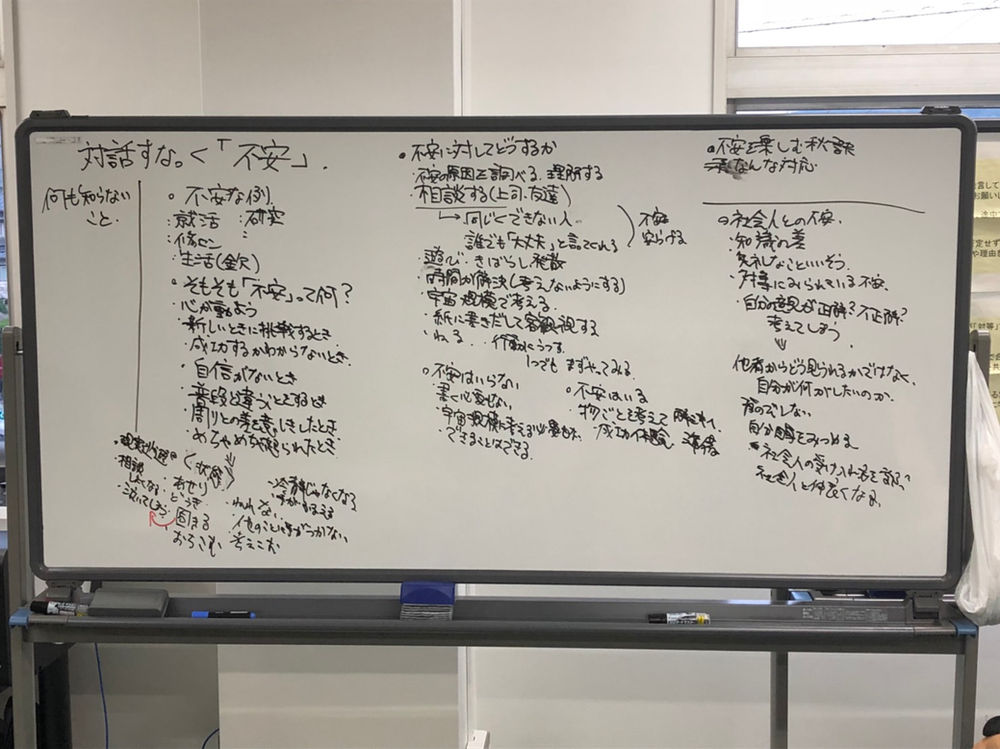 対話すなっく「不安」.
何も知らない
こと.
○ 不安な例.
・就活 ・研究
・修ロン
・生活(金欠)
○ そもそも「不安」って何?
・心が動よう
・新しいときに挑戦するとき
・成功するかわからないとき.
・自信がないとき
・普段と違うことをするとき
・周りとの差を感じたとき
・めちゃめちゃ怒られたとき
(状態)
・現実逃避
・相談
したくなる
・泣いてしまう
・あせり
・どうき
・固まる
・おちこむ
・ねれない
・冷静じゃなくなる
・他のことに手がつかない
・考えこむ
○ 不安に対してどうするか
・不安の原因を調べる. 理解する
・相談する(上司・友達)
→ 同じくできない人.
誰でも「大丈夫」と言ってくれる
不安
安らげる
・遊び・きばらし・発散
・時間が解決(考えないようにする)
・宇宙規模で考える.
・紙に書きだして客観視する
・ねる.. ・行動にうつす
いつでも まずやってみる.
○ 不安はいらない
・書く必要ない.
・宇宙規模に考える必要ない.
・できることはできる.
○ 不安はいる
・物ごとを考えて
・成功体験 準備
○ 不安を楽しむ秘訣
みんな対応
○ 社会人との不安.
・知識の差
・失礼なこといいそう.
・対等にみられている不安.
・自分の意見が正解?不正解?
考えてしまう
⇓
他者からどう見られるかではなく、
自分が何がしたいのか.
背のびしない
自分軸をみつめる
社会人と仲良くなる